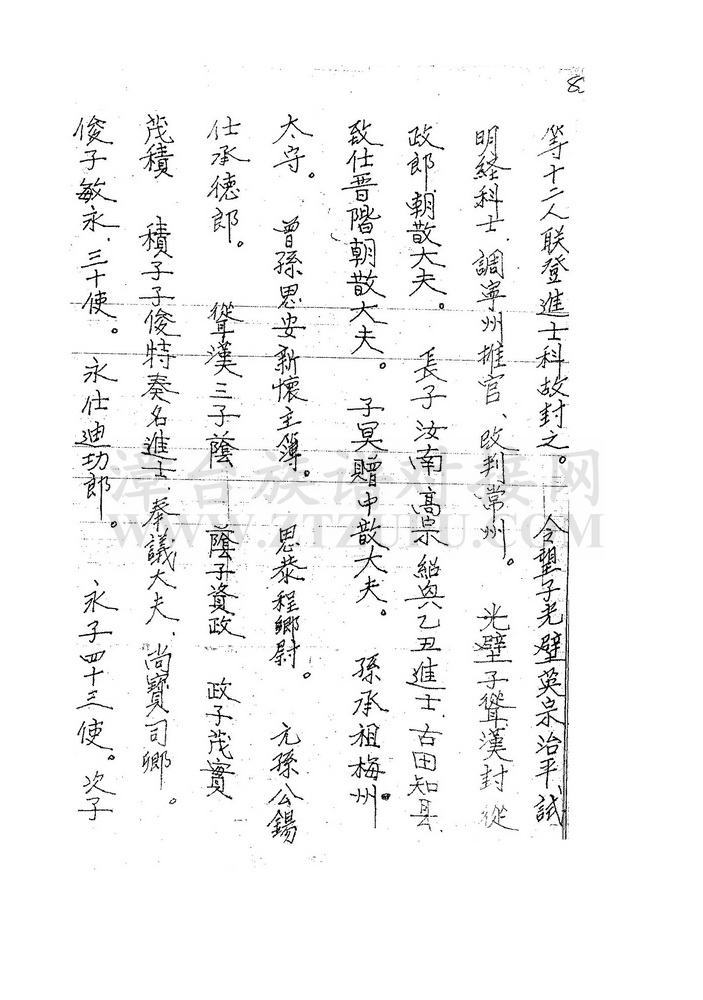 8
等十二人联登進士科故封之。 令望子光壁英宗治平、試
明経科士、調寧州推官、改判常州。 光壁子聳漢封從
政郎、朝散大夫。 長子汝南高宗紹兴乙丑進士、古田知县、
致仕晋階朝散大夫。 子冥贈中散大夫。 孫承祖梅州
太守。 曾孫思安新懷主簿。 思恭程鄉尉。 元孫公錫
仕承德郎。 聳漢三子蔭 蔭子資政 政子茂實
茂積 積子子俊特奏名進士、奉議大夫、尚寶司卿。
俊子敏永、三十使。 永仕迪功郎。 永子四十三使。次子
漳台族谱对接网
WWW.ZTZUPU.COM